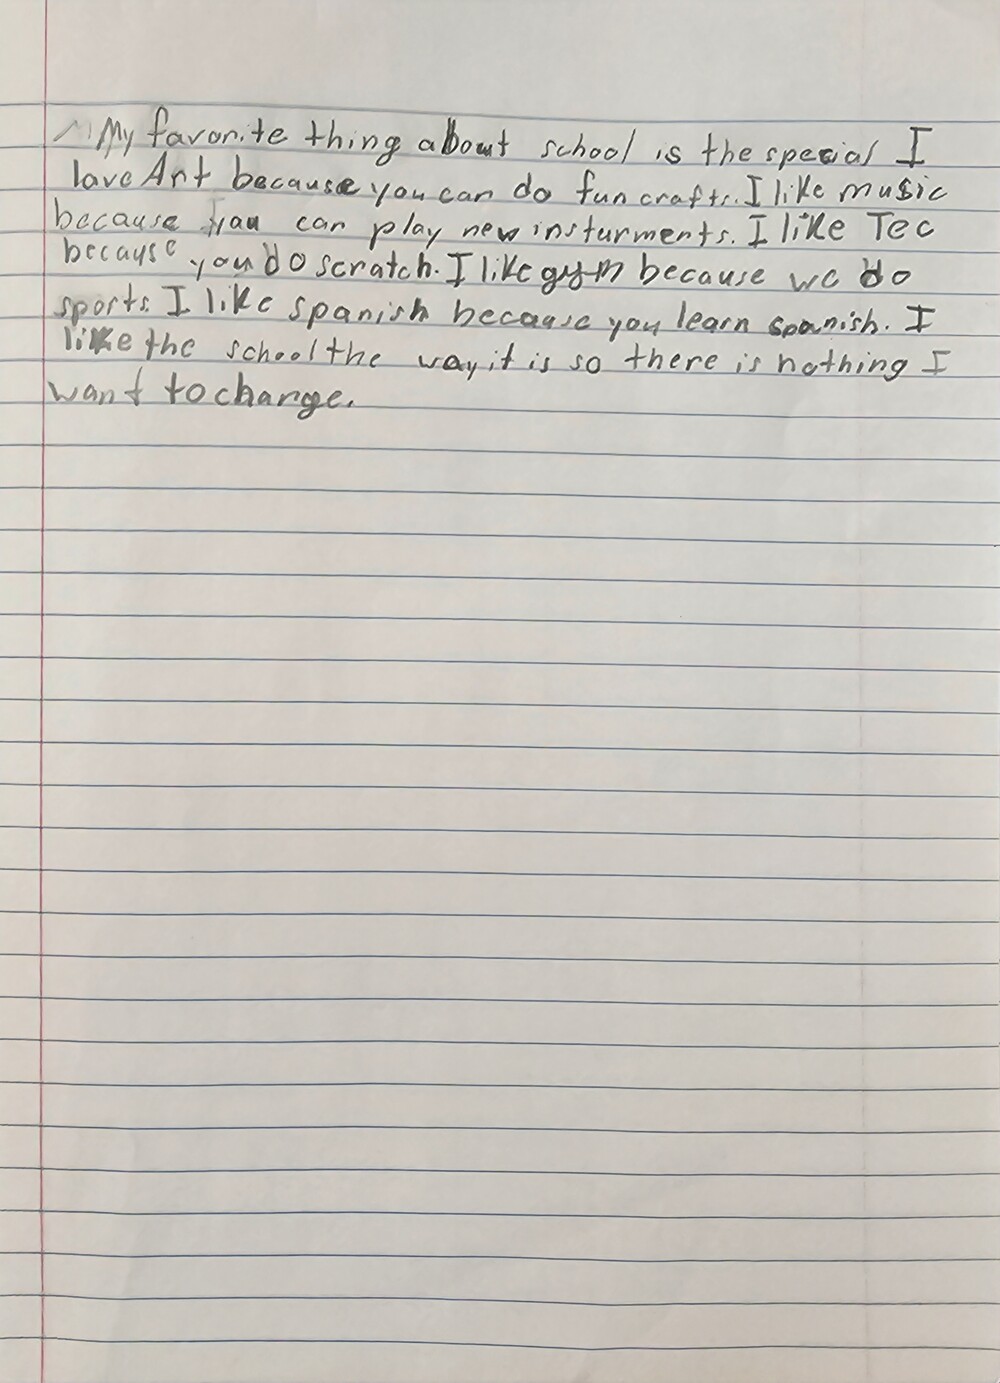 My favorite thing about school is the special I
love Art because you can do fun crafts. I like music
because you can play new insturments. I like Tec
because you do scratch. I like gym because we do
sports. I like spanish because you learn spanish. I
like the school the way it is so there is nothing I
want to change.